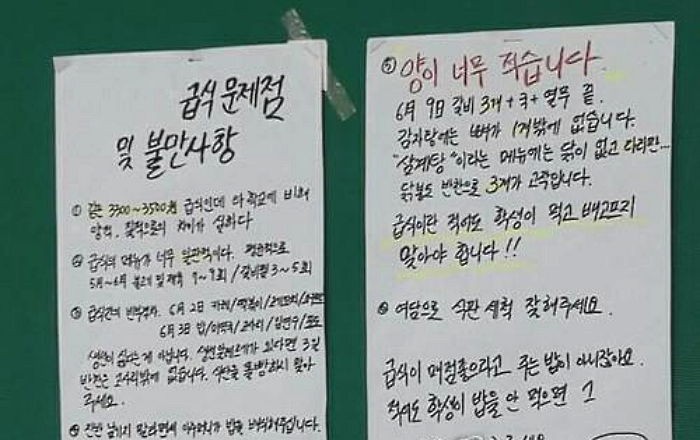 급식 문제점
및 불만사항
① 같은 3300~3500원 급식인데 타학교에 비해
양적, 질적으로의 차이가 심하다
② 급식의 메뉴가 너무 일관적이다. 평균적으로
5月~6月 불고기 및 제육 7~9회 / 갈비찜 3~5회
③ 급식간의 반찬부족. 6月 2日 카레/떡볶이
6月 3日 밥/미역국
생선이 싫다는게 아닙니다.
반찬은 고사리밖에 없습니다. 식단을 불쌍하지 않아
주세요.
④ 잔반 남기지 말라면서 아주머니가 밥을
⑤ 양이 너무 적습니다
6月 9日 갈비 3개 + 국 + 열무 끝.
감자탕에는 뼈가 1개밖에 없습니다.
"삼계탕"이라는 메뉴에는 닭이 없고 다리만...
닭볶도 반찬으로 3개가 고작입니다.
급식이란 적어도 학생이 먹고 배고프지
않아야 합니다!!
⑥ 여담으로 식판 세척 잘해주세요.
급식이 매점좋으라고 주는 밥이 아니잖아요.
적어도 학생이 밥을 안 먹으면 그